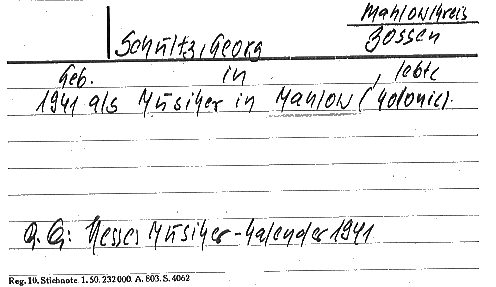 Mahlow/Kreis
Zossen
Schultz, Georg
Geb. in , lebte
1941 als Musiker in Mahlow (Kolonie).
Q.G: Hesses Musiker-Kalender 1941
Reg. 10. Stichnote. 1. 50. 232000. A. 803. S. 4062